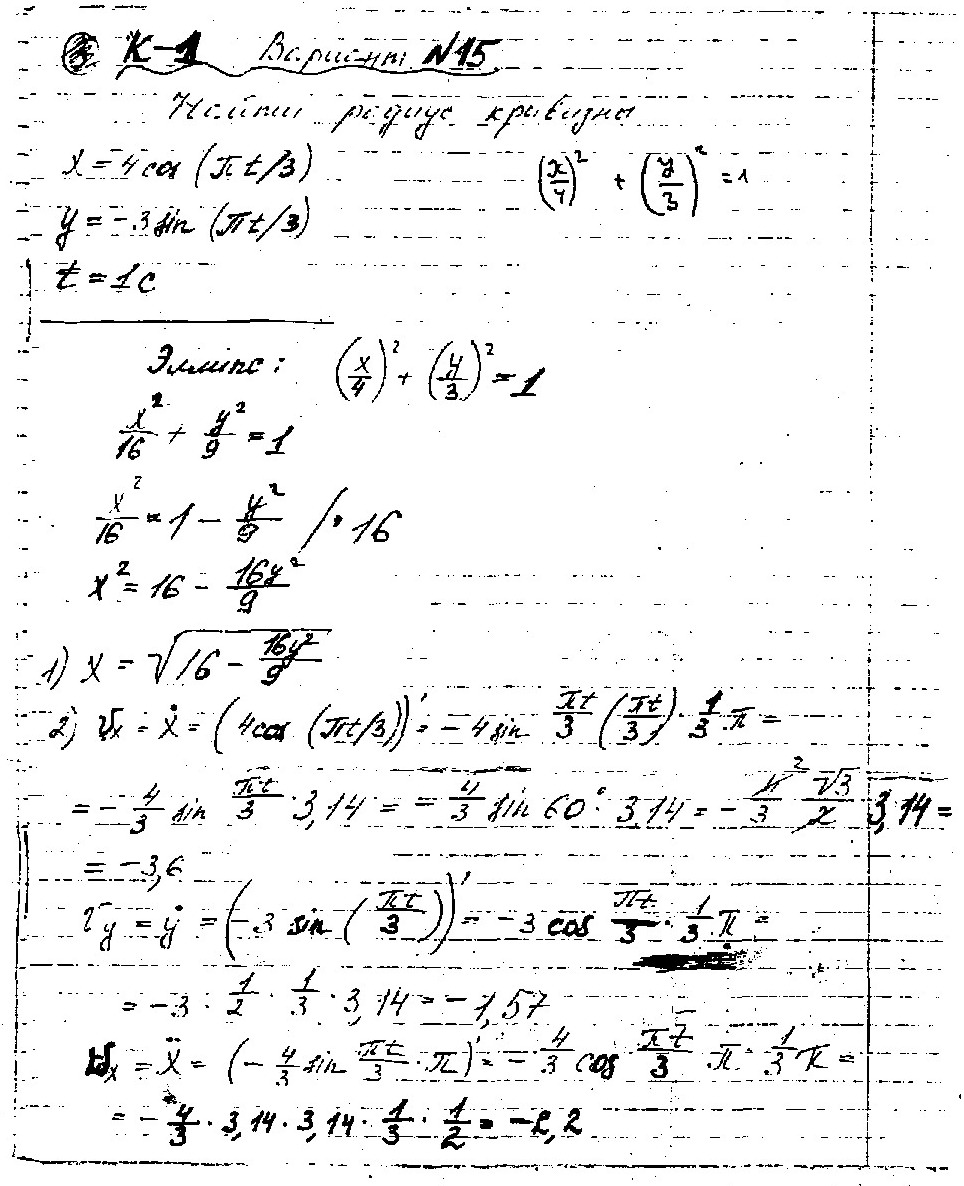 К-1 Вариант №15
Найти радиус кривизны
x = 4 cos (πt/3)
(x/4)² + (y/3)² = 1
y = -3 sin (πt/3)
t = 1c
Эллипс: (x/4)² + (y/3)² = 1
x²/16 + y²/9 = 1
x²/16 = 1 - y²/9 /· 16
x² = 16 - 16y²/9
1) x = √(16 - 16y²/9)
2) v_x = ẋ = (4 cos (πt/3))' = -4 sin πt/3 (πt/3) · 1/3 · π =
= -4/3 sin πt/3 · 3,14 = -4/3 sin 60° · 3,14 = -4²/3 √3/2 3,14 =
= -3,6
v_y = ẏ = (-3 sin (πt/3))' = -3 cos πt/3 · 1/3 · π =
= -3 · 1/2 · 1/3 · 3,14 = -1,57
_x = ẍ = (-4/3 sin πt/3 · π)' = -4/3 cos πt/3 · π · 1/3 π =
= -4/3 · 3,14 · 3,14 · 1/3 · 1/2 = -2,2